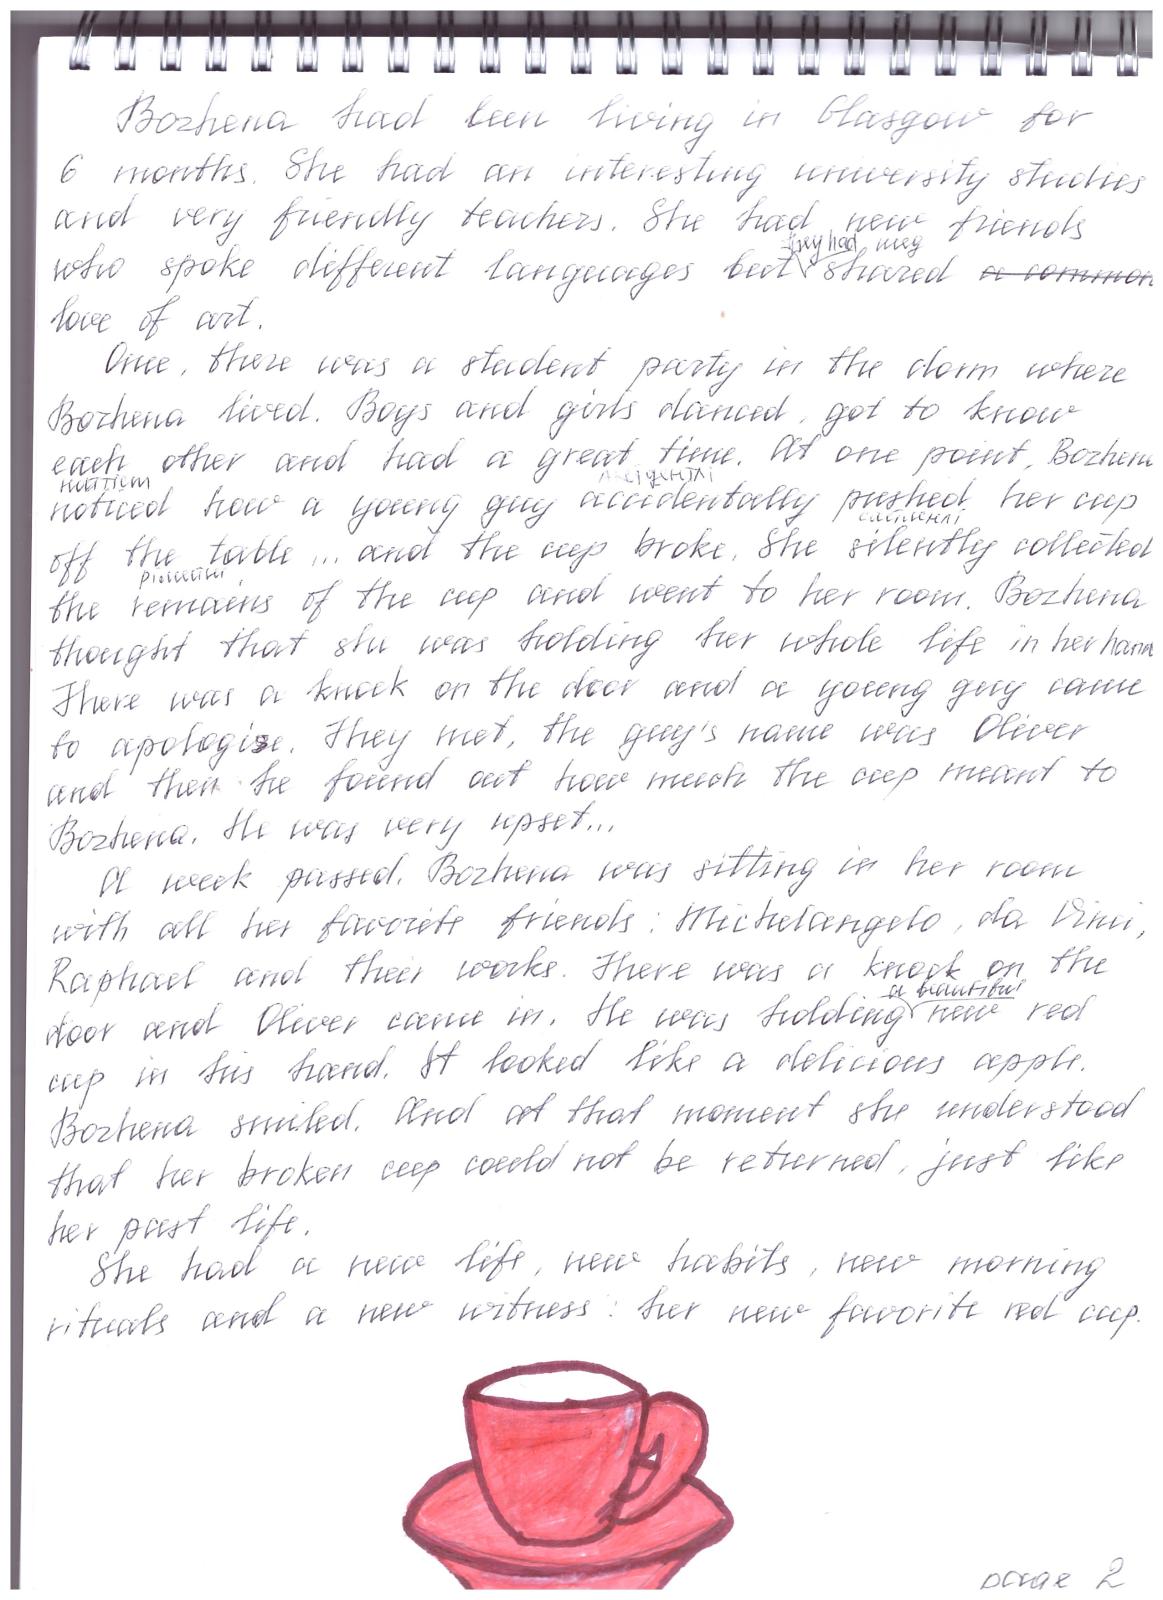 Bozhena had been living in Glasgow for
6 months. She had an interesting university studies
and very friendly teachers. She had new friends
they had
who spoke different languages but shared a common
love of art.
Once, there was a student party in the dorm where
Bozhena lived. Boys and girls danced, got to know
each other and had a great time. At one point, Bozhena
noticed how a young guy accidentally pushed her cup
off the table ... and the cup broke. She silently collected
the remains of the cup and went to her room. Bozhena
thought that she was holding her whole life in her hand
There was a knock on the door and a young guy came
to apologise. They met, the guy's name was Oliver
and then he found out how much the cup meant to
Bozhena. He was very upset...
A week passed. Bozhena was sitting in her room
with all her favorite friends: Michelangelo, da Vinci,
Raphael and their works. There was a knock on the
a beautiful
door and Oliver came in. He was holding new red
cup in his hand. It looked like a delicious apple.
Bozhena smiled. And at that moment she understood
that her broken cup could not be returned, just like
her past life.
She had a new life, new habits, new morning
rituals and a new witness: her new favorite red cup.
page 2